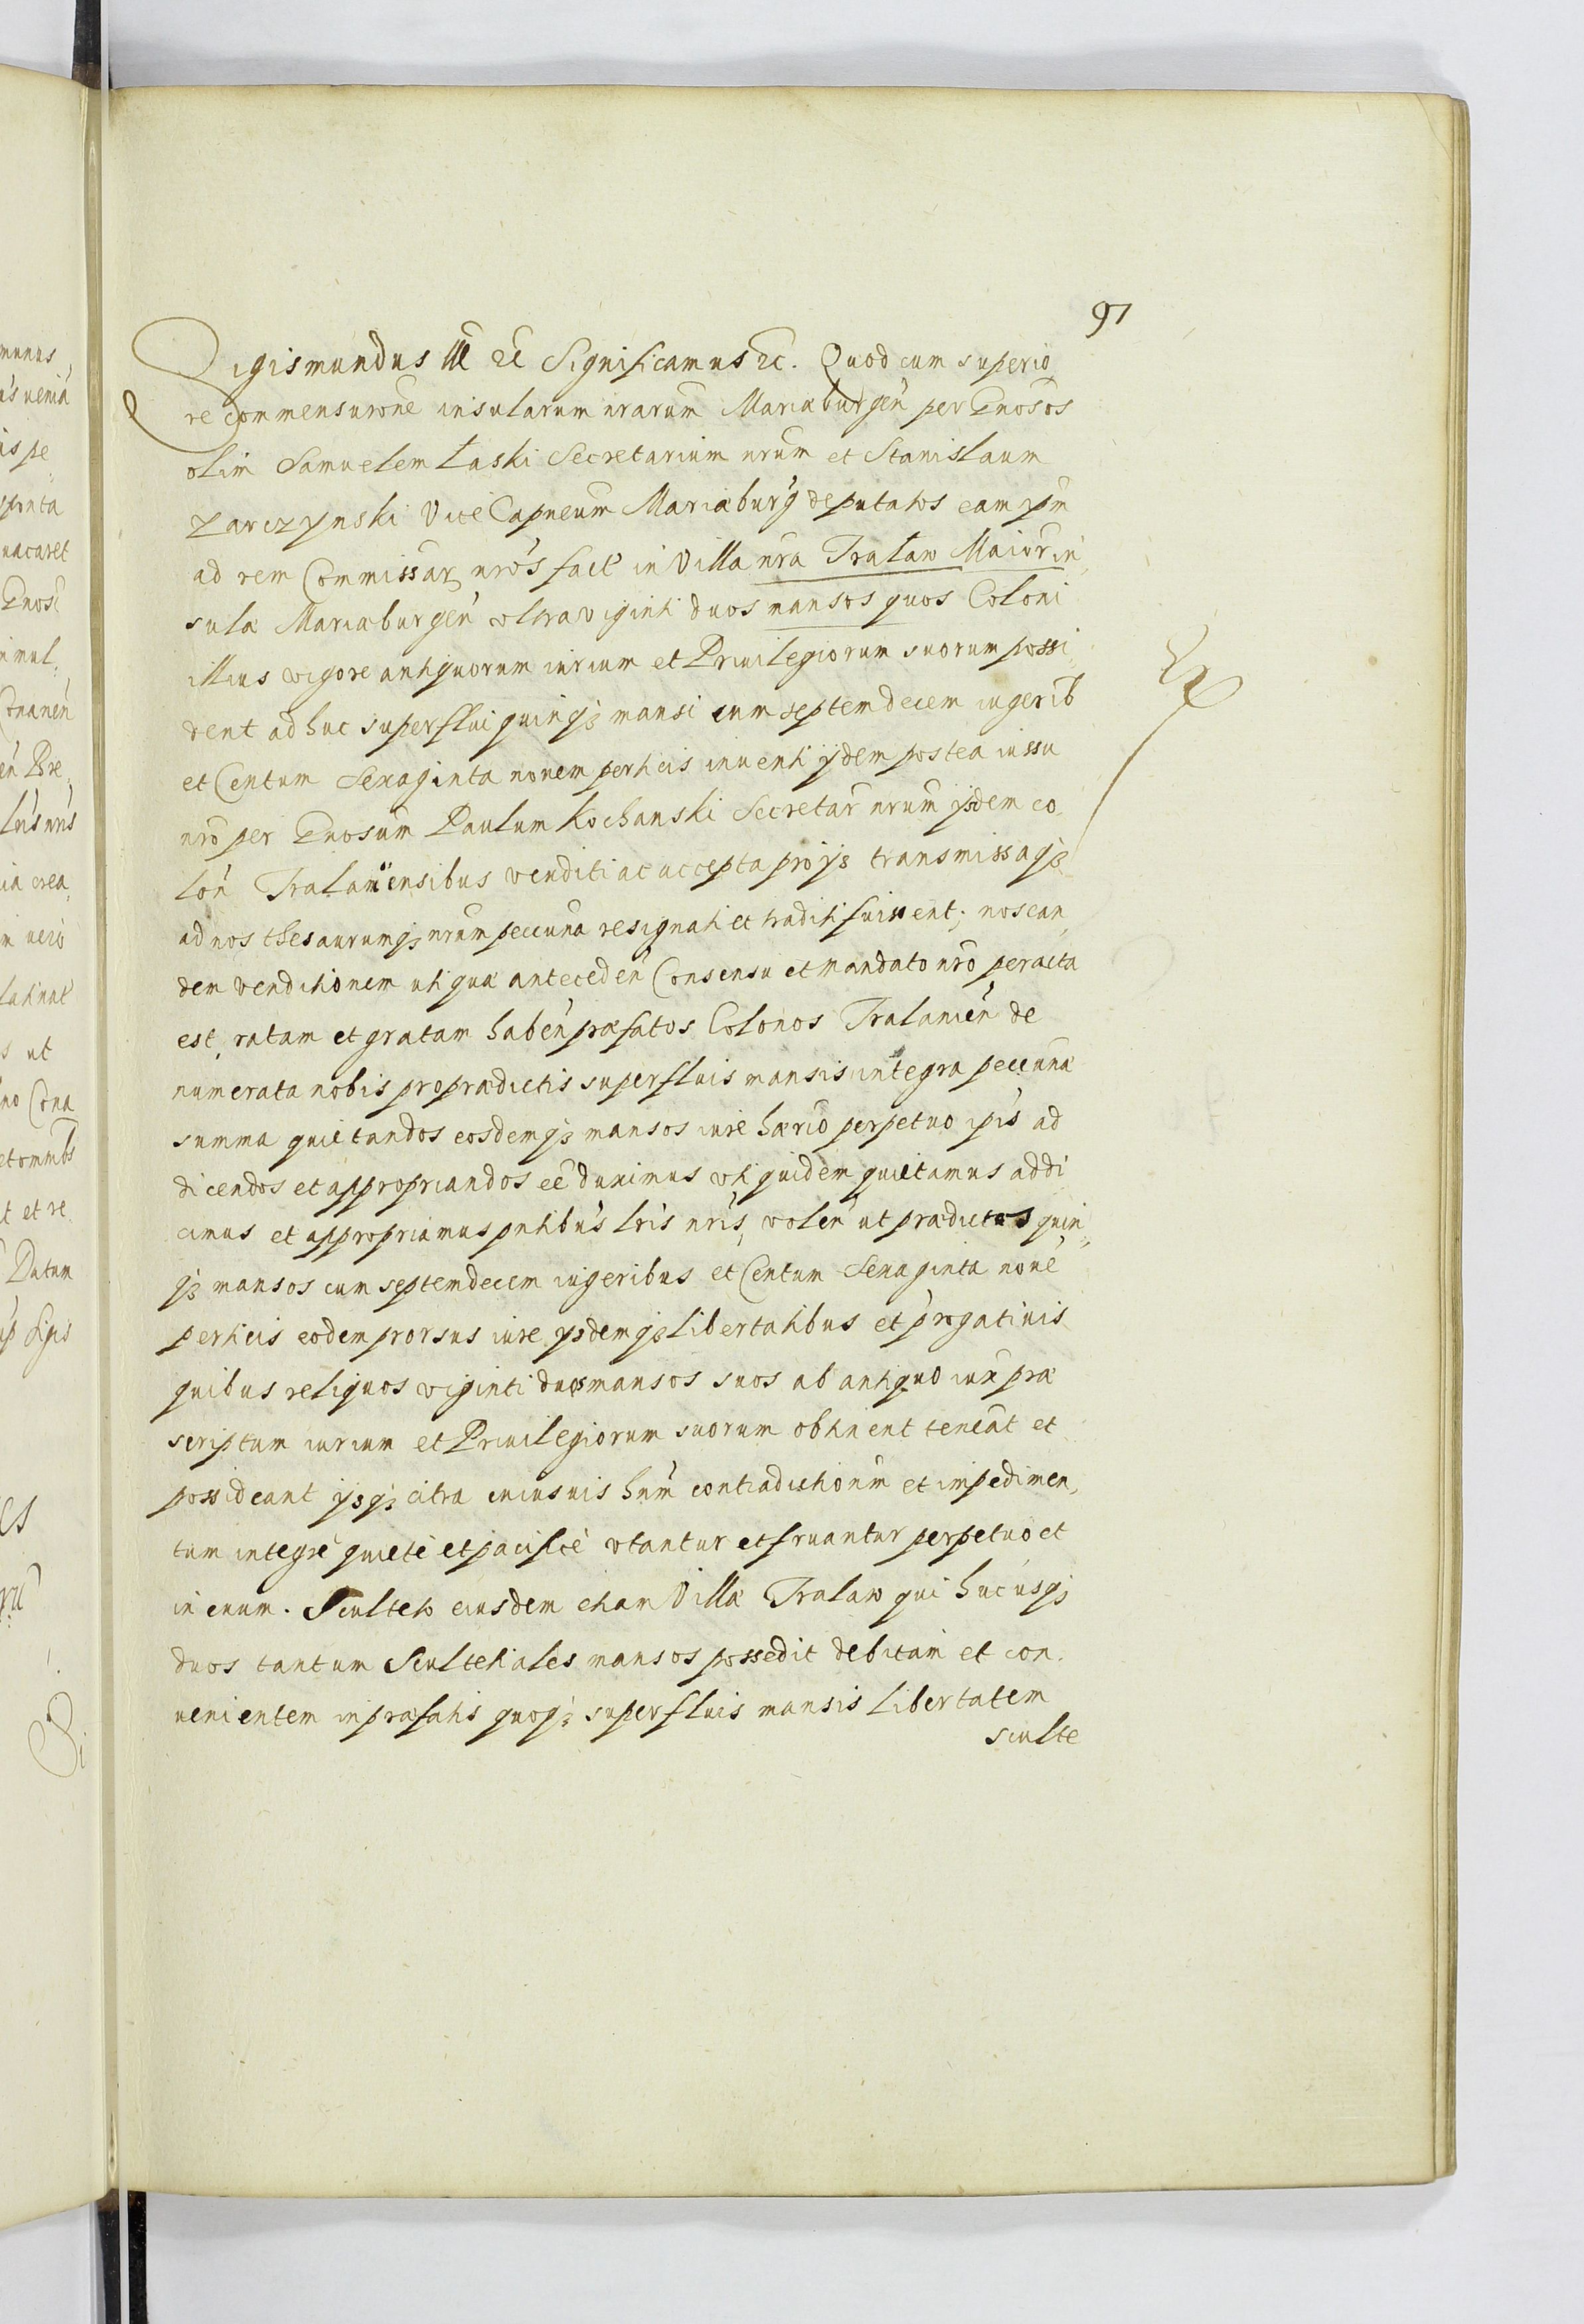 97
Sigismundus III etc Significamus etc. Quod cum superio
re commensurone insularum nrarum Mariæburgen per Gnosos
olim Samuelem Łaski Secretarium nrum et Stanislaum
Zarczynski Vice Capneum Mariæburg deputatos eam ipm
ad rem Commissar nros fact in Villa nra Tralaw Maior in
sula Mariæburgen vltra viginti duos mansos quos Coloni
illius vigore antiquorum iurium et Priuilegiorum suorum possi
dent adhuc superflui quinq3 mansi cum septemdecem iugerib
et Centum Sexaginta novem perticis inuenti ijdem postea iussu
nro per Gnosum Paulum Kochanski Secretar nrum ijsdem co
lon Tralauiensibus venditi ac accepta pro ijs transmissaq3
ad nos thesaurumq3 nrum peccunia resignati et traditi fuissent; nos ean
dem venditionem uti quæ anteceden Consensu et mandato nro peracta
est, ratam et gratam haben præfatos Colonos Tralauien de
numerata nobis pro prædictis superfluis mansis integra peccuniæ
summa quietandos eosdemq3 mansos iure hærio perpetuo ipis ad
dicendos et appropriandos ee duximus vti quidem quietamus addi
cimus et appropriamus pntibus lris nris, volen ut prædictos quin
q3 mansos cum septemdecem iugeribus et Centum Sexaginta nove
perticis eodem prorsus iure ijsdemq3 libertatibus et prrogatiuis
quibus reliquos viginti duos mansos suos ab antiquo iux præ
scriptum iurium et Priuilegiorum suorum obtinent teneat et
possideant ijsq3 citra cuiusuis hnm contradictionem et impedimen
tum integre quiete et pacifice vtantur et fruantur perpetuo et
in euum. Sculteto eiusdem etiam Villæ Tralaw qui hucusq3
duos tantum Scultetiales mansos possedit debitam et con
uenientem in præfatis quoq3 superfluis mansis libertatem
sculte